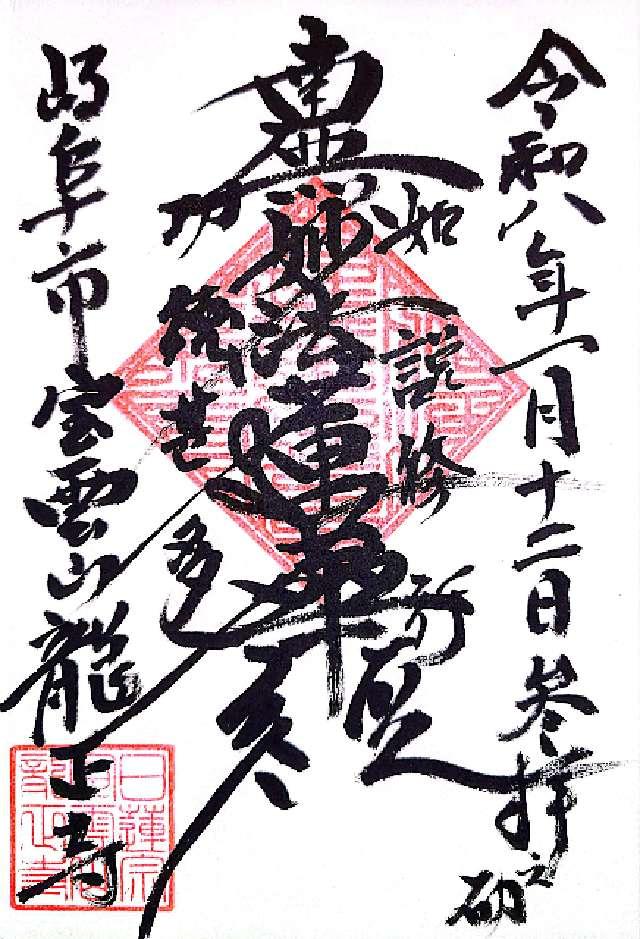 令和八年一月十二日参拝之砌
如説修行
南無妙法蓮華経
功徳甚多
岐阜市宝雲山龍正寺
日蓮宗
龍正寺